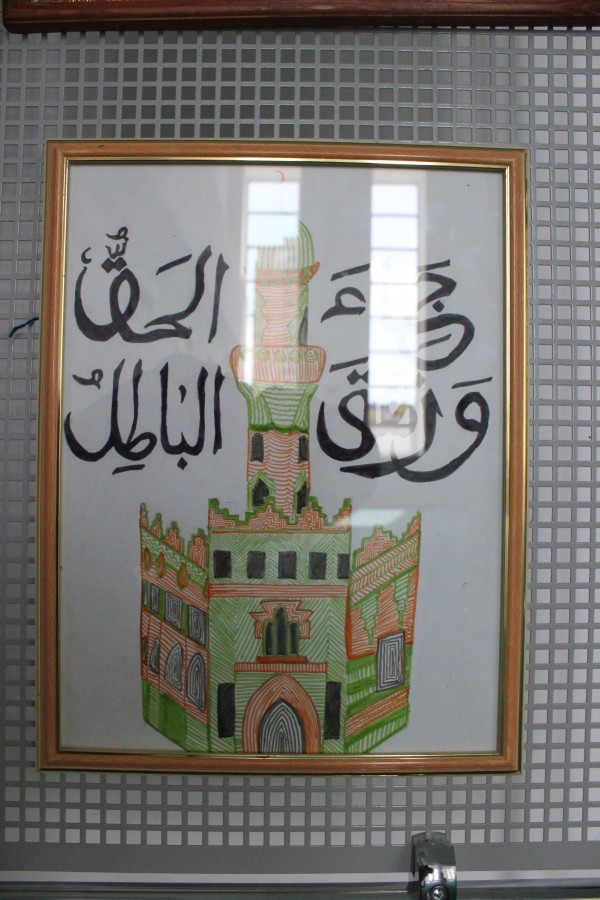 جَاءَ الحَقُّ
وَزَهَقَ البَاطِلُ